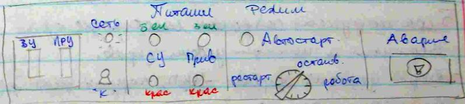 Питание Режим
Сеть Зел Зел
ВУ ПРУ Автостарт Авария
СУ Прив останов
рестарт работа
"К" крас крас